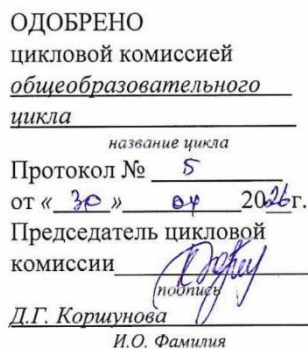 ОДОБРЕНО
цикловой комиссией
общеобразовательного
цикла
название цикла
Протокол № 5
от « 30 » 2026г.
Председатель цикловой
комиссии
подпись
Д.Г. Коршунова
И.О. Фамилия